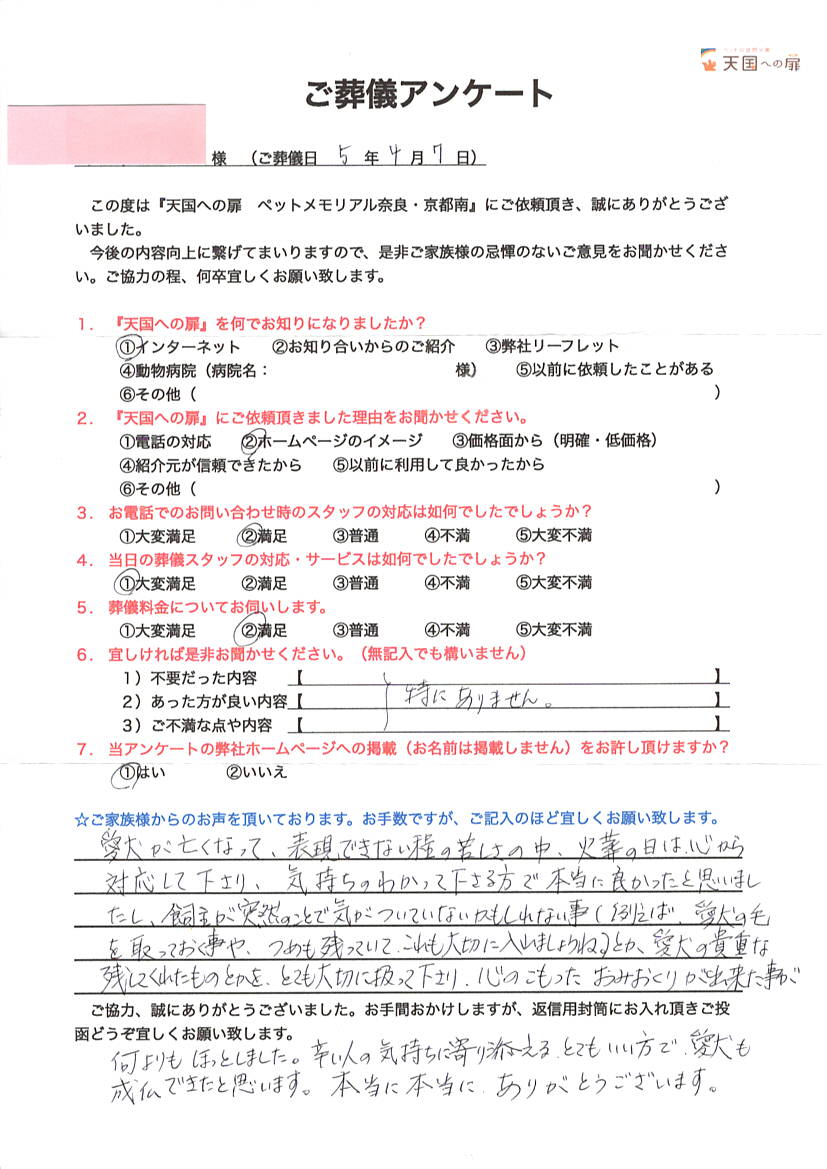 天国への扉
ご葬儀アンケート
様 (ご葬儀日 5 年 4 月 7 日)
この度は『天国への扉 ペットメモリアル奈良・京都南』にご依頼頂き、誠にありがとうござ
いました。
今後の内容向上に繋げてまいりますので、是非ご家族様の忌憚のないご意見をお聞かせくださ
い。ご協力の程、何卒宜しくお願い致します。
1. 『天国への扉』を何でお知りになりましたか?
①インターネット ②お知り合いからのご紹介 ③弊社リーフレット
④動物病院(病院名: 様) ⑤以前に依頼したことがある
⑥その他( )
2. 『天国への扉』にご依頼頂きました理由をお聞かせください。
①電話の対応 ②ホームページのイメージ ③価格面から(明確・低価格)
④紹介元が信頼できたから ⑤以前に利用して良かったから
⑥その他( )
3. お電話でのお問い合わせ時のスタッフの対応は如何でしたでしょうか?
①大変満足 ②満足 ③普通 ④不満 ⑤大変不満
4. 当日の葬儀スタッフの対応・サービスは如何でしたでしょうか?
①大変満足 ②満足 ③普通 ④不満 ⑤大変不満
5. 葬儀料金についてお伺いします。
①大変満足 ②満足 ③普通 ④不満 ⑤大変不満
6. 宜しければ是非お聞かせください。(無記入でも構いません)
1)不要だった内容 【 】
2)あった方が良い内容【 特にありません。 】
3)ご不満な点や内容 【 】
7. 当アンケートの弊社ホームページへの掲載(お名前は掲載しません)をお許し頂けますか?
①はい ②いいえ
☆ご家族様からのお声を頂いております。お手数ですが、ご記入のほど宜しくお願い致します。
愛犬が亡くなって、表現できない程の苦しさの中、火葬の日は、心から
対応して下さり、気持ちのわかって下さる方で本当に良かったと思いまし
たし、飼主が突然のことで気がついていないかもしれない事(例えば、愛犬の毛
を取っておく事や、つめも残っていて、これも大切に入れましょうね)とか、愛犬の貴重な
残してくれたものとかを、とても大切に扱って下さり、心のこもったおみおくりが出来た事が
ご協力、誠にありがとうございました。お手間おかけしますが、返信用封筒にお入れ頂きご投
函どうぞ宜しくお願い致します。
何よりもほっとしました。辛い人の気持ちに寄り添える、とてもいい方で、愛犬も
成仏できたと思います。本当に本当に、ありがとうございます。